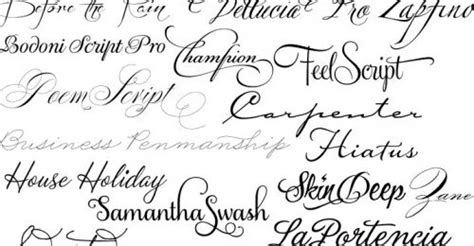 Before the Rain Pellucida Pro Zapfino
Bodoni Script Pro
Champion
FeelScript
Poem Script
Carpenter
Business Penmanship
Hiatus
House Holiday
Skin Deep
Zane
Samantha Swash
LaPortencia